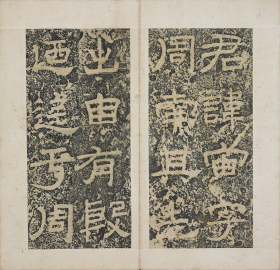 君諱宙字
周南且其
出由有殷
迺遷于周